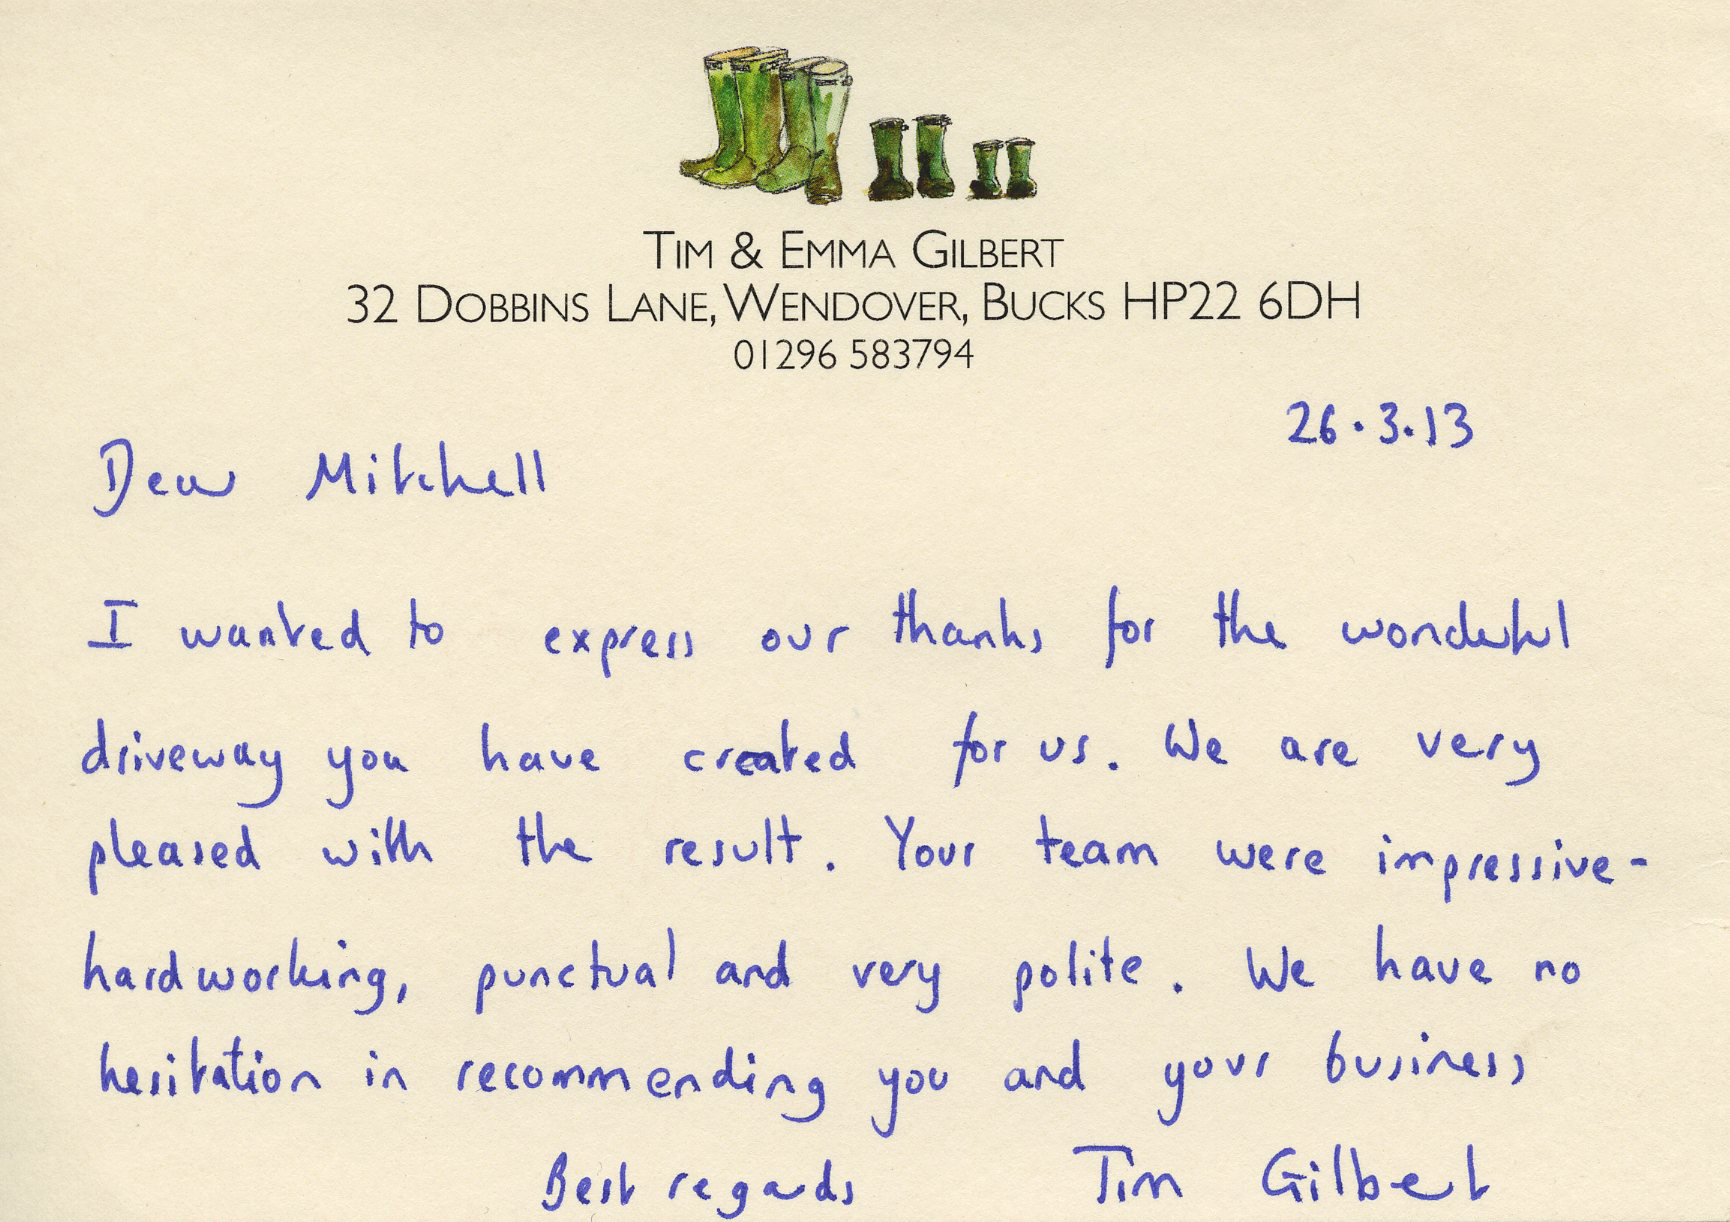 TIM & EMMA GILBERT
32 DOBBINS LANE, WENDOVER, BUCKS HP22 6DH
01296 583794
26.3.13
Dear Mitchell
I wanted to express our thanks for the wonderful
driveway you have created for us. We are very
pleased with the result. Your team were impressive-
hardworking, punctual and very polite. We have no
hesitation in recommending you and your business
Best regards Tim Gilbert